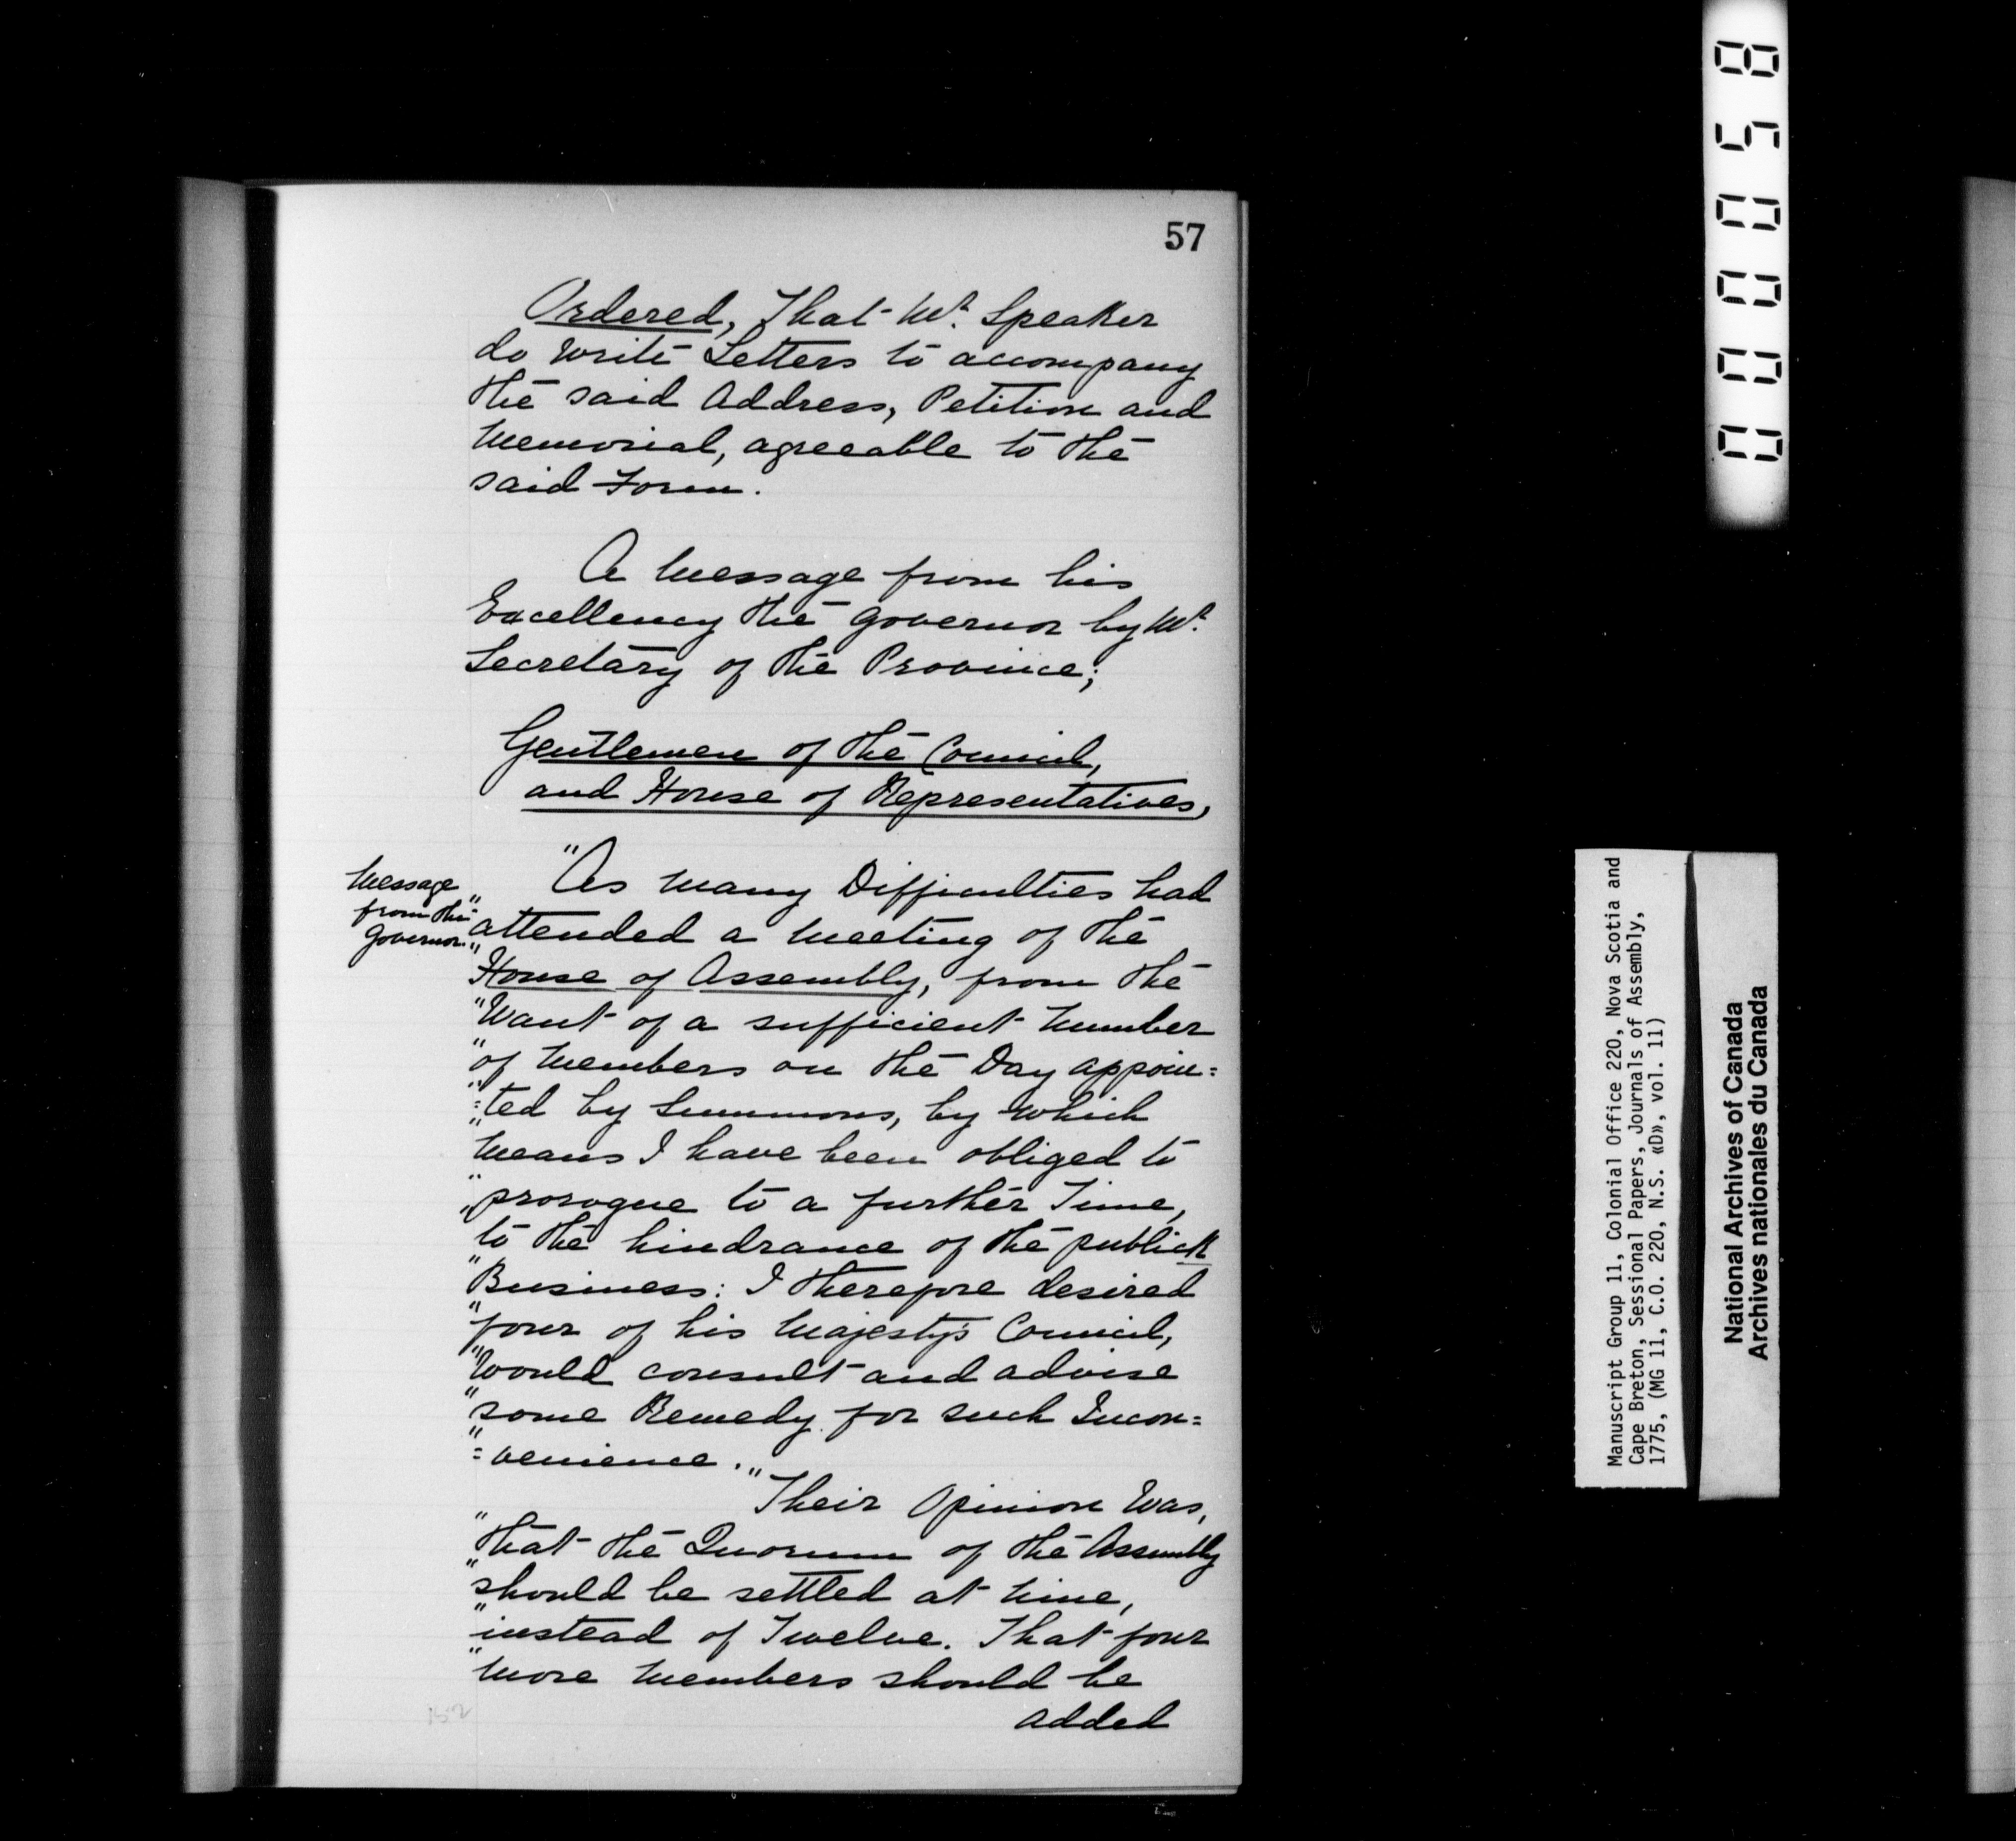 57
Ordered, That Mr. Speaker
do write Letters to accompany
the said Address, Petition and
Memorial, agreeable to the
said Form.
A Message from his
Excellency the Governor by Mr.
Secretary of the Province;
Gentlemen of the Council,
and House of Representatives,
Message
from the
Governor.
"As many Difficulties had
"attended a Meeting of the
"House of Assembly, from the
"Want of a sufficient Number
"of Members on the Day appoin=
"=ted by Summons, by which
"Means I have been obliged to
"prorogue to a further Time,
"to the hindrance of the publick
"Business: I therefore desired
"four of his Majesty's Council,
"Would consult and advise
"some Remedy for such Incon=
"=venience."
"Their Opinion Was,
"that the Quorum of the Assembly
"should be settled at Nine,
"instead of Twelve. That four
"More Members should be
added
152
0000058
Manuscript Group 11, Colonial Office 220, Nova Scotia and
Cape Breton, Sessional Papers, Journals of Assembly,
1775, (MG 11, C.O. 220, N.S. «D», vol. 11)
National Archives of Canada
Archives nationales du Canada